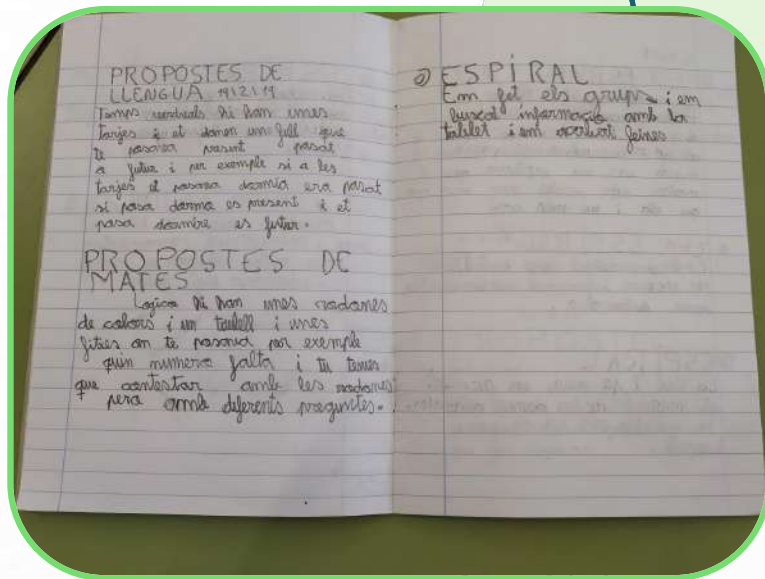 PROPOSTES DE
LLENGUA 19/2/19
Temps verdvals hi han unes
tarjes i et donen un full que
te posara present pasat
a futur i per exemple si a les
tarjes et posara dormia era pasat
si posa dorma es present i et
posa dormire es futur.
PROPOSTES DE
MATES
Logica hi han unes rodones
de colors i un taulell i unes
fitxes on te posara por exemple
quin numero falta i tu tenes
que contestar amb les rodones
pero amb diferents preguntes.
ESPiRAL
Em fet els grups i em
buscat informacio amb la
tablet i em acabat feines